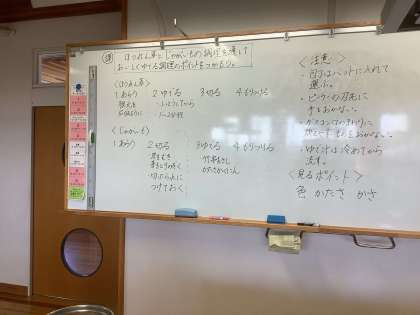 ほうれん草とじゃがいもの調理を通して
おいしくゆでる調理のポイントをつかもう。
〈ほうれん草〉
1 あらう 2 ゆでる 3 切る 4 もりつける
根元を
〈じゃがいも〉
1 あらう 2 切る 3 ゆでる 4 もりつける
皮をむき
切ったら水に
つけておく
・竹串をさし
かたさかくにん
〈注意〉
・包丁はバットに入れて
運ぶ。
・ピーラーの刃先に
手をおかない。
・ガスコンロのまわりに
燃えやすいものをおかない。
・ゆで汁は冷めてから
流す。
〈見るポイント〉
色 かたさ かさ